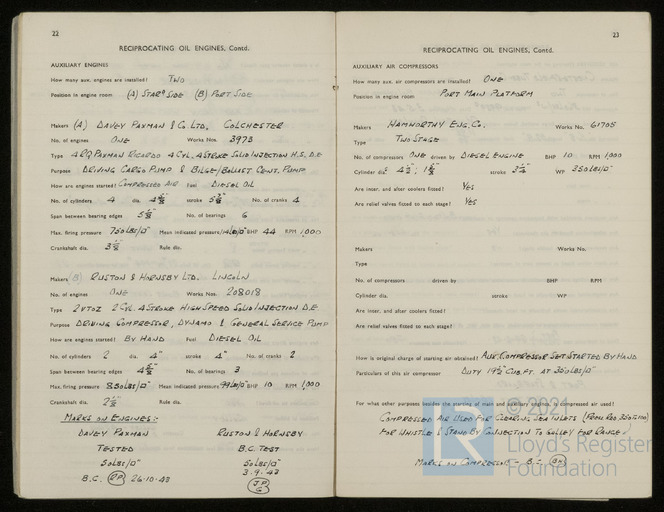 22
RECIPROCATING OIL ENGINES, Contd.
AUXILIARY ENGINES
How many aux. engines are installed? TWO
Position in engine room (A) STARD SIDE (B) PORT SIDE
Makers (A) DAVEY PAXMAN & CO. LTD, COLCHESTER
No. of engines ONE Works Nos. 3973
Type 4 RQ PAXMAN RICARDO 4 CYL. 4 STROKE SOLID INJECTION H.S. D.E
Purpose DRIVING CARGO PUMP & BILGE/BALLAST CENT. PUMP
How are engines started? COMPRESSED AIR Fuel DIESEL OIL
No. of cylinders 4 dia. stroke No. of cranks 4
Span between bearing edges No. of bearings 6
Max. firing pressure 750 LBS/□" Mean indicated pressure BHP 44 RPM 1,000
Crankshaft dia. Rule dia.
Makers (B) RUSTON & HORNSBY LTD. LINCOLN
No. of engines ONE Works Nos. 208018
Type 2 VTOZ 2 CYL. 4 STROKE HIGH SPEED SOLID INJECTION D.E.
Purpose DRIVING COMPRESSOR, DYNAMO & GENERAL SERVICE PUMP
How are engines started? BY HAND Fuel DIESEL OIL
No. of cylinders 2 dia. 4" stroke 4" No. of cranks 2
Span between bearing edges No. of bearings 3
Max. firing pressure 850 LBS/□" Mean indicated pressure BHP 10 RPM 1,000
Crankshaft dia. Rule dia.
MARKS ON ENGINES:-
DAVEY PAXMAN RUSTON & HORNSBY
TESTED B.C. TEST
50 LBS/□" 50 LBS/□"
B.C. 26.10.43 3.9.43
23
RECIPROCATING OIL ENGINES, Contd.
AUXILIARY AIR COMPRESSORS
How many aux. air compressors are installed? ONE
Position in engine room PORT MAIN PLATFORM
Makers HAMWORTHY ENG. CO. Works No. 61705
Type TWO STAGE
No. of compressors ONE driven by DIESEL ENGINE BHP 10 RPM 1,000
Cylinder dia. stroke WP 350 LBS/□"
Are inter. and after coolers fitted? YES
Are relief valves fitted to each stage? YES
Makers Works No.
Type
No. of compressors driven by BHP RPM
Cylinder dia. stroke WP
Are inter. and after coolers fitted?
Are relief valves fitted to each stage?
How is original charge of starting air obtained? AUX. COMPRESSOR SET STARTED BY HAND
Particulars of this air compressor DUTY 19½ CUB. FT. AT 350 LBS/□"
For what other purposes besides the starting of main and auxiliary engines, is compressed air used?
COMPRESSED AIR USED FOR CLEARING SEA INLETS
FOR WHISTLE & STAND BY CONNECTION TO GALLEY FOR RANGE
MARKS ON COMPRESSOR - B.C.
© 2021
Lloyd's Register
Foundation